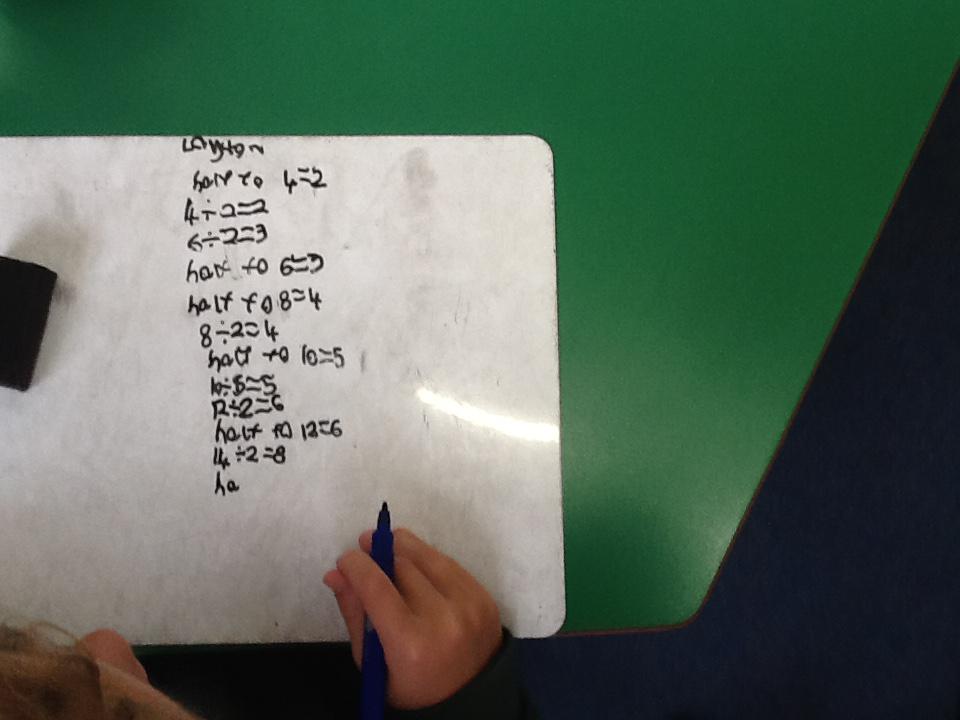 half to 4=2
4÷2=2
6÷2=3
half to 6=3
half to 8=4
8÷2=4
half to 10=5
10÷5=5
12÷2=6
half to 12=6
14÷2=8
ha